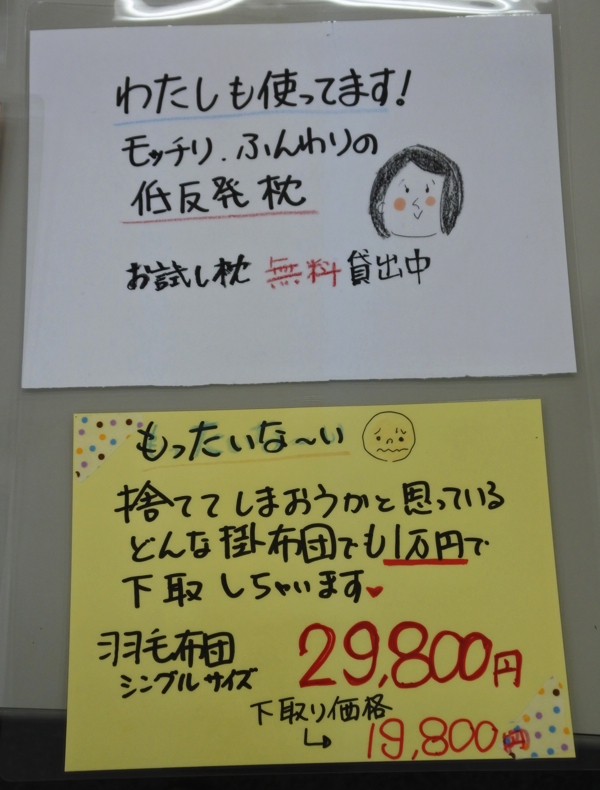 わたしも使ってます!
モッチリ.ふんわりの
低反発枕
お試し枕 無料 貸出中
もったいな〜い
捨ててしまおうかと思っている
どんな掛布団でも1万円で
下取しちゃいます♥
羽毛布団 29,800円
シングルサイズ
下取り価格
↳ 19,800円